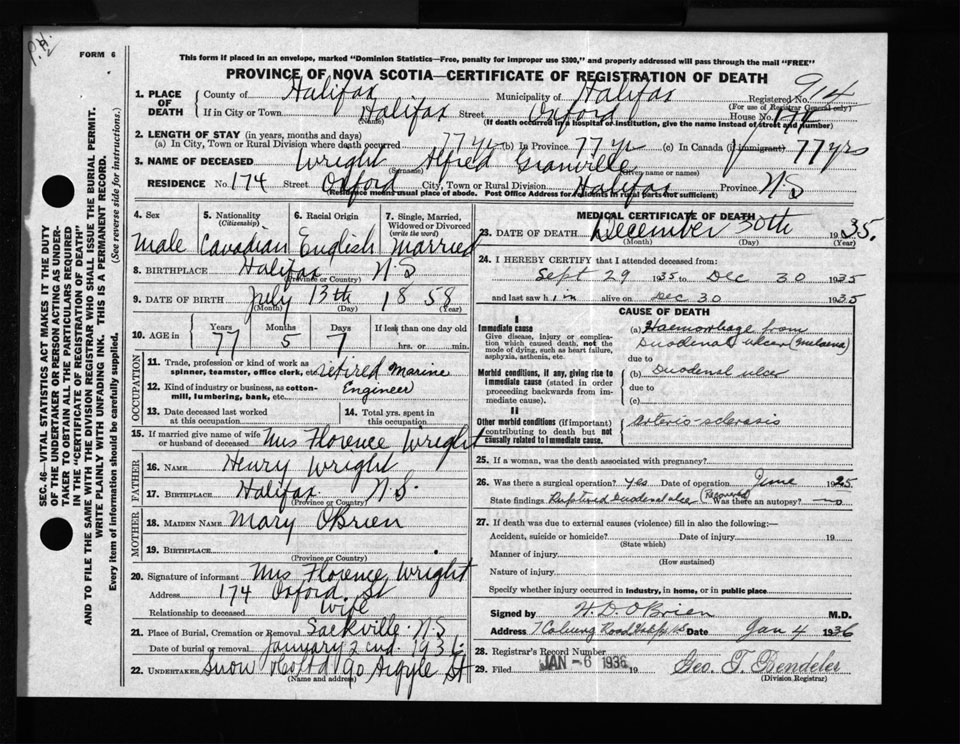 P.H.
FORM 6
This form if placed in an envelope, marked "Dominion Statistics—Free, penalty for improper use $300," and properly addressed will pass through the mail "FREE"
PROVINCE OF NOVA SCOTIA—CERTIFICATE OF REGISTRATION OF DEATH
1. PLACE OF DEATH
County of Halifax Municipality of Halifax Registered No. 914
(For use of Registrar General only)
If in City or Town Halifax Street Oxford House No. 174
(Name) (If death occurred in a hospital or institution, give the name instead of street and number)
2. LENGTH OF STAY (in years, months and days)
(a) In City, Town or Rural Division where death occurred 77 yr (b) In Province 77 yr (c) In Canada (if immigrant) 77 yrs
3. NAME OF DECEASED Wright Alfred Granville
(Surname) (Given name or names)
RESIDENCE No. 174 Street Oxford City, Town or Rural Division Halifax Province N.S
(Residence means usual place of abode. Post Office Address for residents in rural parts not sufficient)
4. Sex Male
5. Nationality (Citizenship) Canadian
6. Racial Origin English
7. Single, Married, Widowed or Divorced (write the word) Married
8. BIRTHPLACE Halifax N.S
(Province or Country)
9. DATE OF BIRTH July 13th 1858
(Month) (Day) (Year)
10. AGE in Years 77 Months 5 Days 7 If less than one day old hrs. or min.
OCCUPATION
11. Trade, profession or kind of work as spinner, teamster, office clerk, etc. retired Marine
12. Kind of industry or business, as cotton-mill, lumbering, bank, etc. Engineer
13. Date deceased last worked at this occupation
14. Total yrs. spent in this occupation
15. If married give name of wife or husband of deceased Mrs Florence Wright
FATHER
16. NAME Henry Wright
17. BIRTHPLACE Halifax N.S.
(Province or Country)
MOTHER
18. MAIDEN NAME Mary O'Brien
19. BIRTHPLACE
(Province or Country)
20. Signature of informant Mrs Florence Wright
Address 174 Oxford St
Relationship to deceased Wife
21. Place of Burial, Cremation or Removal Sackville N.S
Date of burial or removal January 2nd 1936
22. UNDERTAKER Snow & Co Ltd 90 Argyle St
(Name and address)
MEDICAL CERTIFICATE OF DEATH
23. DATE OF DEATH December 30th 1935.
(Month) (Day) (Year)
24. I HEREBY CERTIFY that I attended deceased from:
Sept 29 1935 to Dec 30 1935
and last saw him alive on Dec 30 1935
CAUSE OF DEATH
I
Immediate cause
Give disease, injury or complication which caused death, not the mode of dying, such as heart failure, asphyxia, asthenia, etc.
(a) Haemorrhage from Duodenal ulcer (melaena)
due to
Morbid conditions, if any, giving rise to immediate cause (stated in order proceeding backwards from immediate cause).
(b) Duodenal ulcer
due to
(c)
II
Other morbid conditions (if important) contributing to death but not causally related to immediate cause.
Arterio-sclerosis
25. If a woman, was the death associated with pregnancy?
26. Was there a surgical operation? Yes Date of operation June 1925
State findings Ruptured Duodenal ulcer (Recovered) Was there an autopsy? no
27. If death was due to external causes (violence) fill in also the following:—
Accident, suicide or homicide? Date of injury 19
(State which)
Manner of injury
(How sustained)
Nature of injury
Specify whether injury occurred in industry, in home, or in public place
Signed by H.D. O'Brien M.D.
Address 7 Coburg Road Hfx NS Date Jan 4 1936
28. Registrar's Record Number
29. Filed JAN -6 1936 19 Geo. T. Bendeler
(Division Registrar)
SEC. 46—VITAL STATISTICS ACT MAKES IT THE DUTY OF THE UNDERTAKER OR PERSON ACTING AS UNDERTAKER TO OBTAIN ALL THE PARTICULARS REQUIRED IN THE "CERTIFICATE OF REGISTRATION OF DEATH" AND TO FILE THE SAME WITH THE DIVISION REGISTRAR WHO SHALL ISSUE THE BURIAL PERMIT.
WRITE PLAINLY WITH UNFADING INK. THIS IS A PERMANENT RECORD.
Every item of information should be carefully supplied. (See reverse side for instructions.)